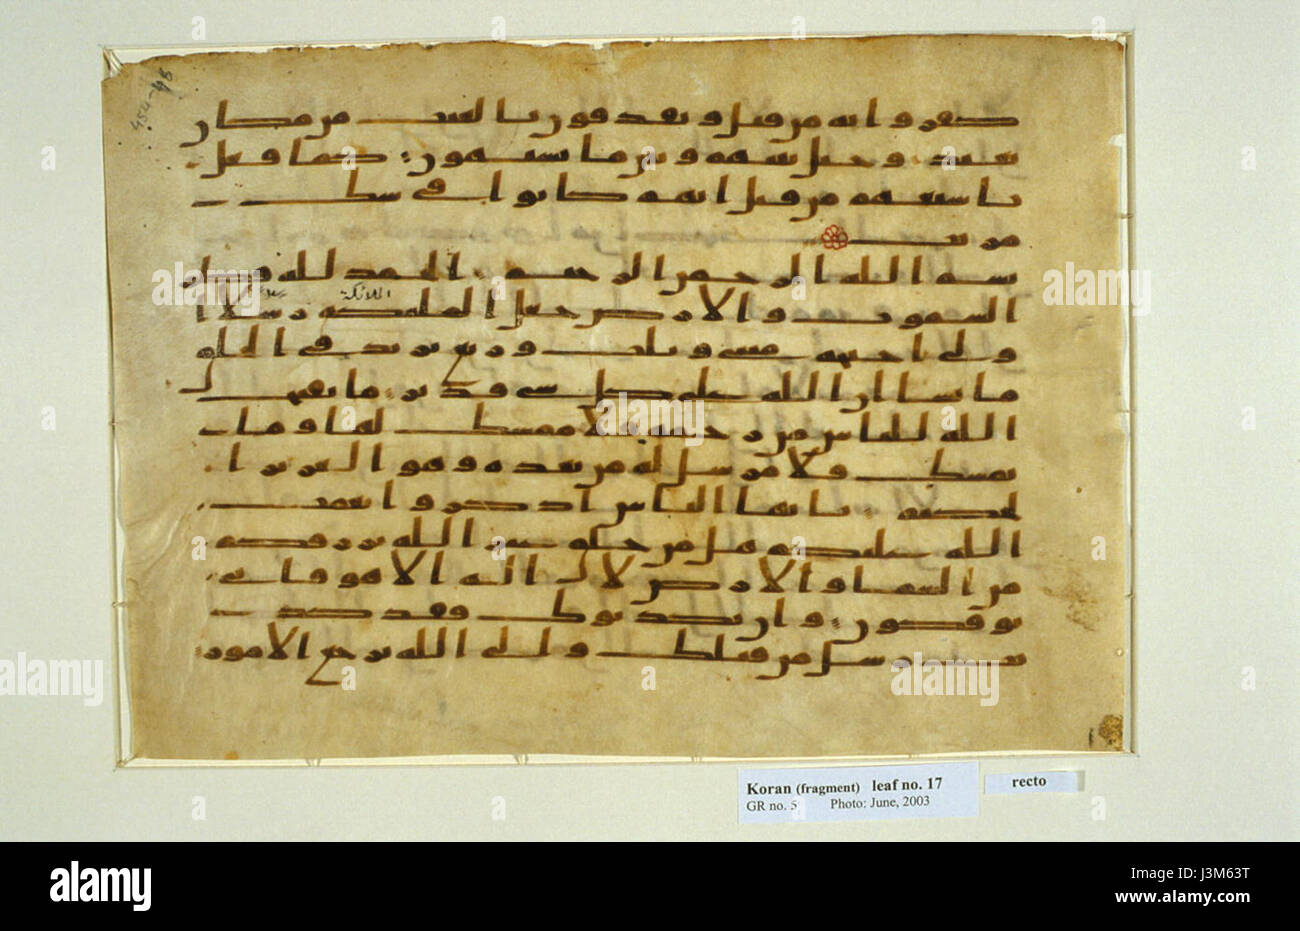 كفروا به من قبل ويقذفون بالغيب من مكان
بعيد وحيل بينهم وبين ما يشتهون كما فعل
باشيعهم من قبل انهم كانوا في شك
مريب
بسم الله الرحمن الرحيم الحمد لله فطر
الملائكة
السموت والارض جعل الملئكة رسلا ا
ولى اجنحة مثنى وثلث وربع يزيد في الخلق
ما يشا ان الله على كل شى قدير ما يفتح
الله للناس من رحمة فلا ممسك لها وما
يمسك فلا مرسل له من بعده وهو العزيز ا
لحكيم يايها الناس اذكروا نعمت
الله عليكم هل من خلق غير الله يرزقكم
من السما والارض لا اله الا هو فانى
توفكون وان يكذبوك فقد كذبت
رسل من قبلك والى الله ترجع الامور
Koran (fragment) leaf no. 17
GR no. 5 Photo: June, 2003
recto
alamy
Image ID: J3M63T
www.alamy.com